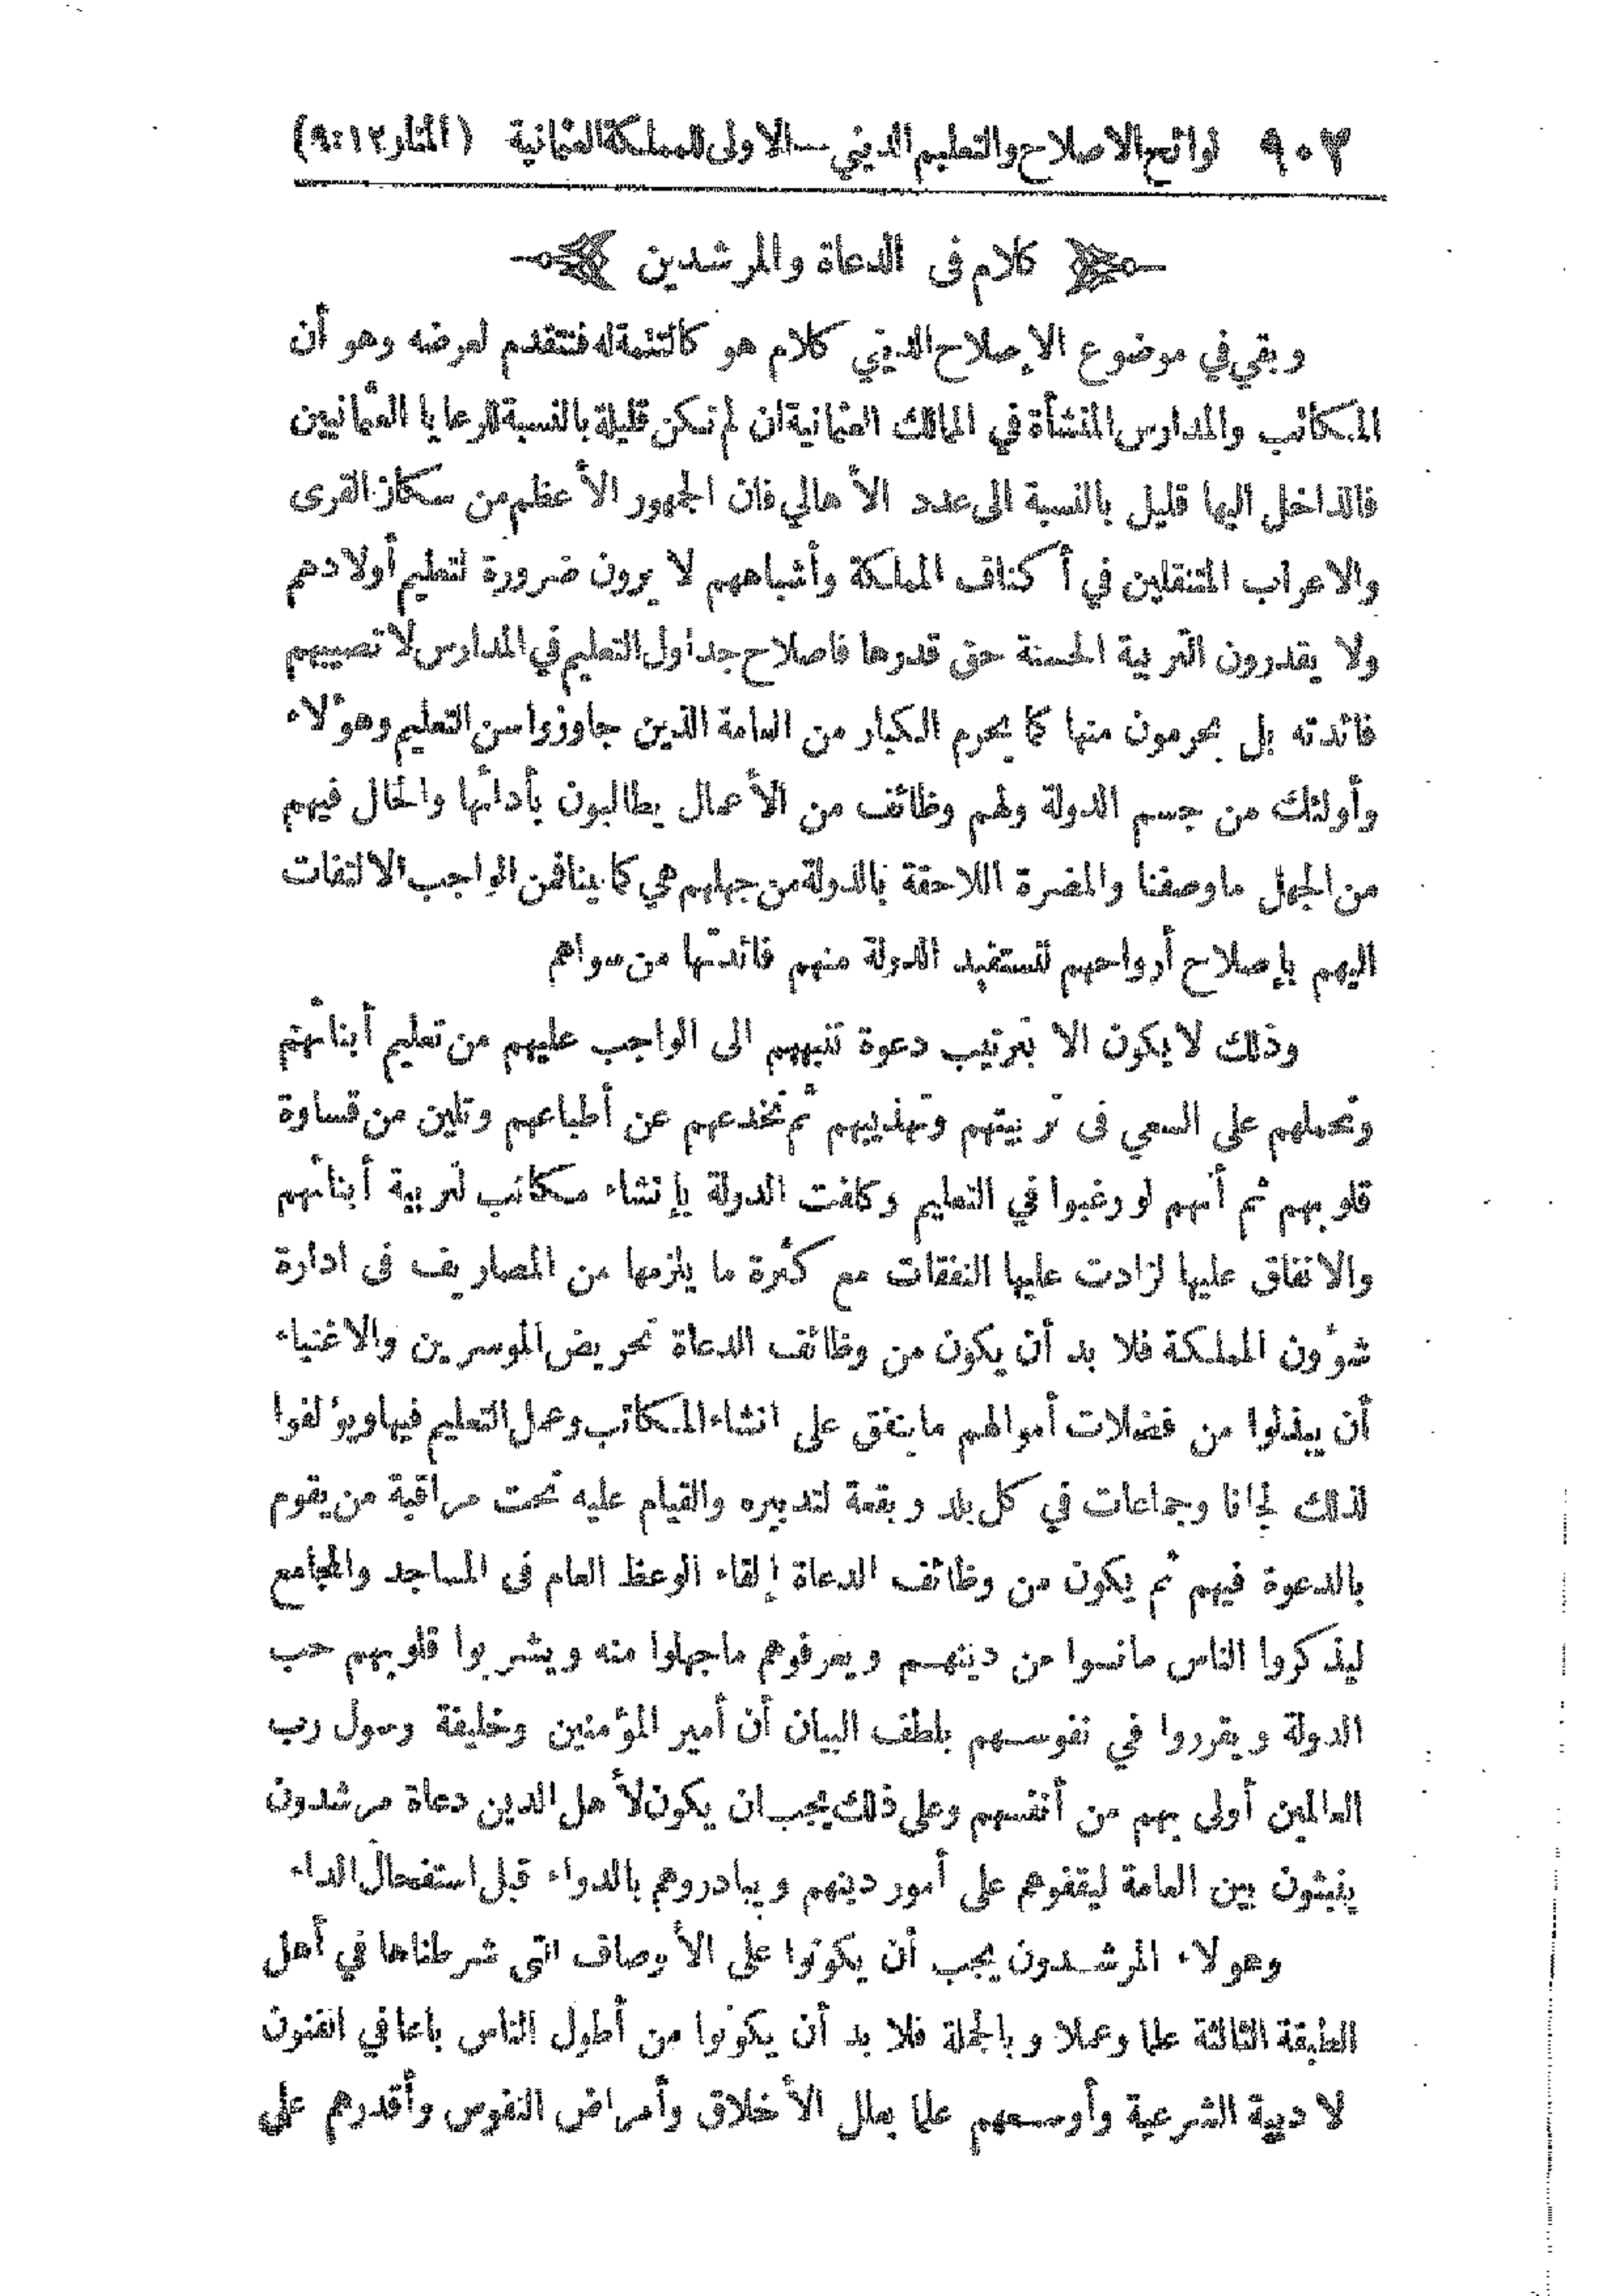 ٩٠٢ لوائح الاصلاح والتعليم الديني — الاولى للمملكة العثمانية (المنار ١٢:٩)
كلام فى الدعاة والمرشدين
وبقي في موضوع الإصلاح الديني كلام هو كالتتمة له فنتقدم لعرضه وهو أن
المكاتب والمدارس المنشأة في الممالك العثمانية ان لم تكن قليلة بالنسبة للرعايا العثمانيين
فالداخل اليها قليل بالنسبة الى عدد الأهالي فان الجمهور الأعظم من سكان القرى
والاعراب المتنقلين في أكناف المملكة وأشباههم لا يرون ضرورة لتعليم أولادهم
ولا يقدرون التربية الحسنة حق قدرها فاصلاح جداول التعليم في المدارس لا تصيبهم
فائدته بل يحرمون منها كما يحرم الكبار من العامة الذين جاوزوا سن التعليم وهؤلاء
وأولئك من جسم الدولة ولهم وظائف من الأعمال يطالبون بأدائها والحال فيهم
من الجهل ما وصفنا والمضرة اللاحقة بالدولة من جهلهم هي كما بينا فمن الواجب الالتفات
اليهم بإصلاح أرواحهم لتستفيد الدولة منهم فائدتها من سواهم
وذلك لا يكون الا بترتيب دعوة تنبههم الى الواجب عليهم من تعليم أبنائهم
وتحملهم على السعي فى تربيتهم وتهذيبهم ثم تخدعهم عن أطباعهم وتلين من قساوة
قلوبهم ثم أنهم لو رغبوا في التعليم وكلفت الدولة بإنشاء مكاتب لتربية أبنائهم
والانفاق عليها لزادت عليها النفقات مع كثرة ما يلزمها من المصاريف فى ادارة
شؤون المملكة فلا بد أن يكون من وظائف الدعاة تحريض الموسرين والاغنياء
أن يبذلوا من فضلات أموالهم ما ينفق على انشاء المكاتب وعمل التعليم فيها ويؤلفوا
لذلك لجانا وجماعات في كل بلد وبقعة لتدبيره والقيام عليه تحت مراقبة من يقوم
بالدعوة فيهم ثم يكون من وظائف الدعاة إلقاء الوعظ العام فى المساجد والمجامع
ليذكروا الناس ما نسوا من دينهم ويعرفوهم ما جهلوا منه ويشربوا قلوبهم حب
الدولة ويقرروا في نفوسهم بلطف البيان أن أمير المؤمنين وخليفة رسول رب
العالمين أولى بهم من أنفسهم وعلى ذلك يجب ان يكون لأهل الدين دعاة مرشدون
ينبثون بين العامة ليقفوهم على أمور دينهم ويبادروهم بالدواء قبل استفحال الداء
وهولاء المرشدون يجب أن يكونوا على الأوصاف التى شرطناها في أهل
الطبقة الثالثة علما وعملا وبالجملة فلا بد أن يكونوا من أطول الناس باعا في الفنون
لا دبية الشرعية وأوسعهم علما بعلل الأخلاق وأمراض النفوس وأقدرهم على